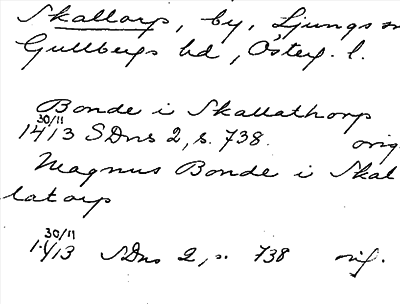 Skallorp, by, Ljungs
Gullbergs hd, Österg. l.
Bonde i Skallathorp
30/11
1413 SDns 2, s. 738. orig
Magnus Bonde i Skal
latorp
30/11
1413 SDns 2, s. 738 orig.